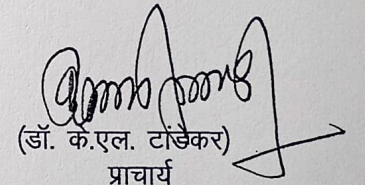 (डॉ. के.एल. टांडेकर)
प्राचार्य